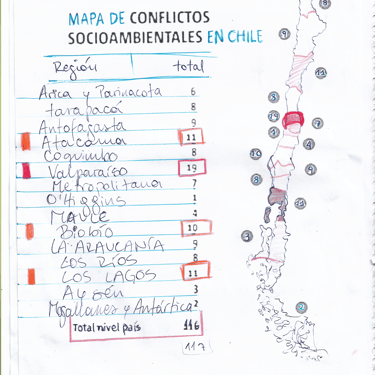 MAPA DE CONFLICTOS
SOCIOAMBIENTALES EN CHILE
Región total
Arica y Parinacota 6
tarapacá 8
Antofagasta 9
Atacama 11
Coquimbo 8
Valparaíso 19
Metropolitana 7
O'Higgins 1
MAULE 4
Biobío 10
LA ARAUCANÍA 9
LOS RÍOS 8
LOS LAGOS 11
Aysén 3
Magallanes y Antártica 2
Total nivel país 116
117